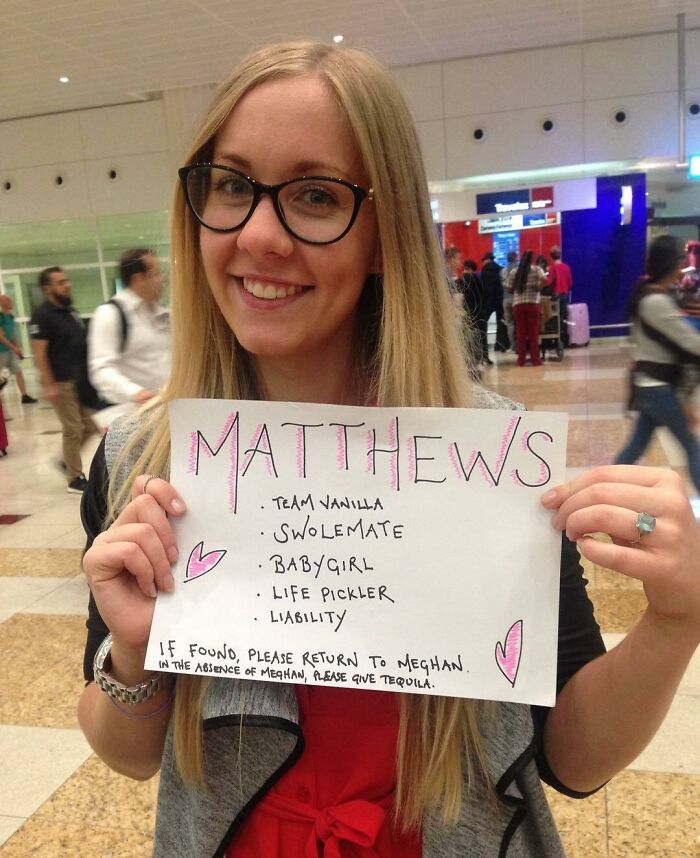 Travelex
MATTHEWS
· TEAM VANILLA
· SWOLEMATE
· BABYGIRL
· LIFE PICKLER
· LIABILITY
IF FOUND, PLEASE RETURN TO MEGHAN.
IN THE ABSENCE OF MEGHAN, PLEASE GIVE TEQUILA.